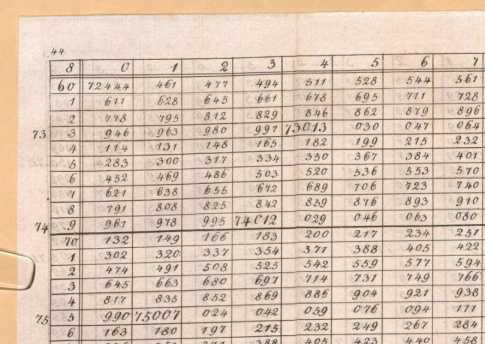 44
8 0 1 2 3 4 5 6 7
60 72444 461 477 494 511 528 544 561
1 611 628 645 661 678 695 711 728
2 778 795 812 829 846 862 879 896
73 3 946 963 980 997 73013 030 047 064
4 114 131 148 165 182 199 215 232
5 283 300 317 334 350 367 384 401
6 452 469 486 503 520 536 553 570
7 621 638 655 672 689 706 723 740
8 791 808 825 842 859 876 893 910
74 9 961 978 995 74012 029 046 063 080
70 132 149 166 183 200 217 234 251
1 302 320 337 354 371 388 405 422
2 474 491 508 525 542 559 577 594
3 645 663 680 697 714 731 749 766
4 817 835 852 869 886 904 921 938
75 5 990 75007 024 042 059 076 094 111
6 163 180 197 215 232 249 267 284
388 405 423 440 458